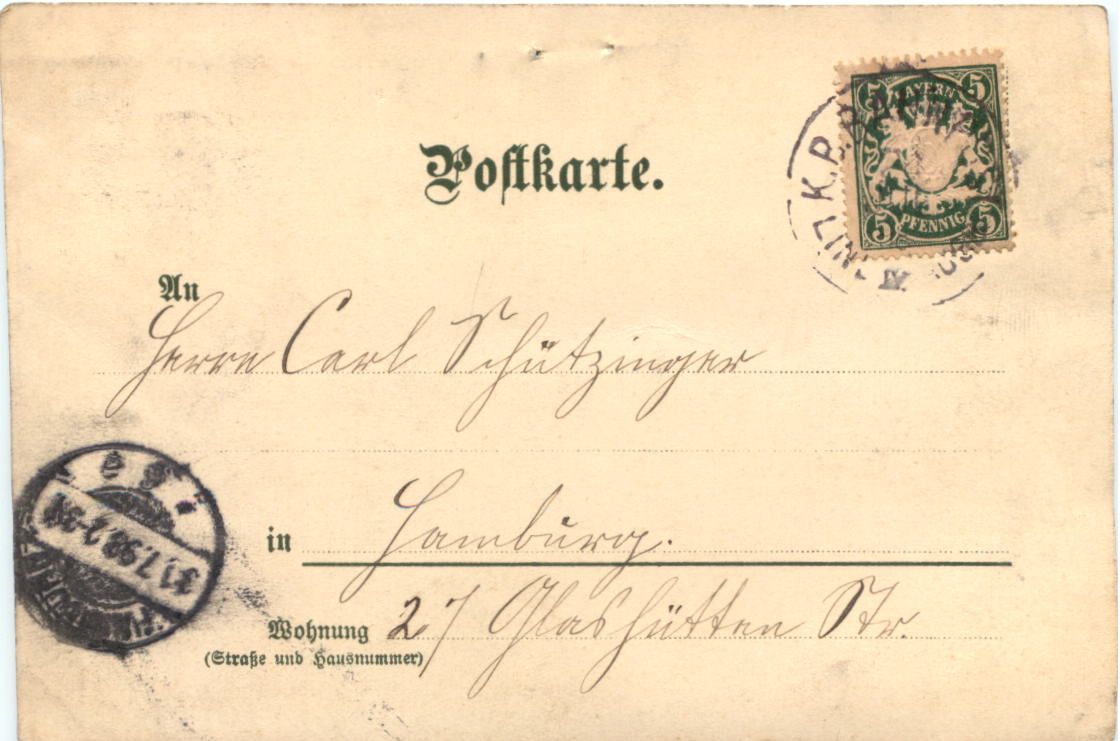 5 5
BAYERN
5 PFENNIG 5
K.B.BAHN
IV
Postkarte.
An
Herrn Carl Schützinger
in Hamburg.
Wohnung 27 Glashütten Str.
(Straße und Hausnummer)
31.7.98.2-3N